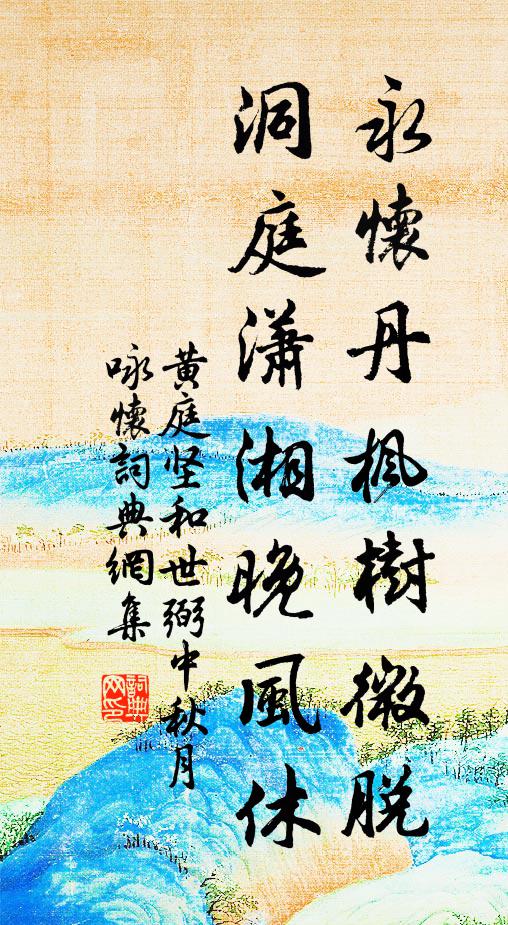 永懷丹楓樹微脫
洞庭瀟湘晚風休
黃庭坚和世弼中秋月
咏懷詞典網集
詞典
网印